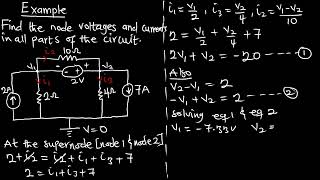 Example
Find the node voltages and currents
in all parts of the circuit.
i₂
10Ω
V₁
V₂
2V
i₁
i₃
2A
2Ω
4Ω
7A
V=0
At the supernode [node 1 & node 2]
2+i₂ = i₂+i₁+i₃+7
2 = i₁+i₃+7
i₁ = V₁/2, i₃ = V₂/4, i₂ = V₁-V₂/10
2 = V₁/2 + V₂/4 + 7
2V₁ + V₂ = -20 ----- ①
Also
V₂-V₁ = 2
-V₁ + V₂ = 2 ----- ②
solving eq 1 & eq 2
V₁ = -7.33V V₂ =